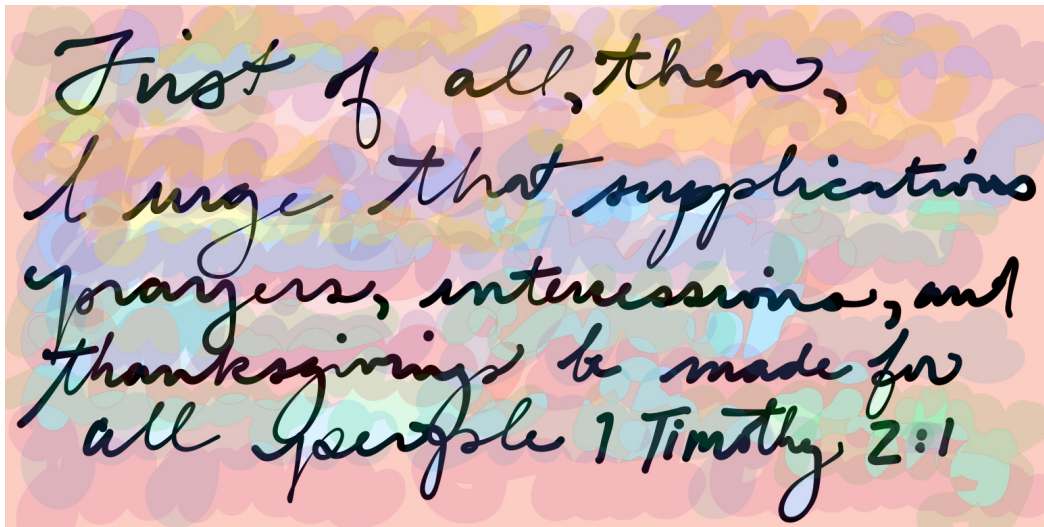 First of all, then,
I urge that supplications
prayers, intercessions, and
thanksgivings be made for
all people 1 Timothy 2:1